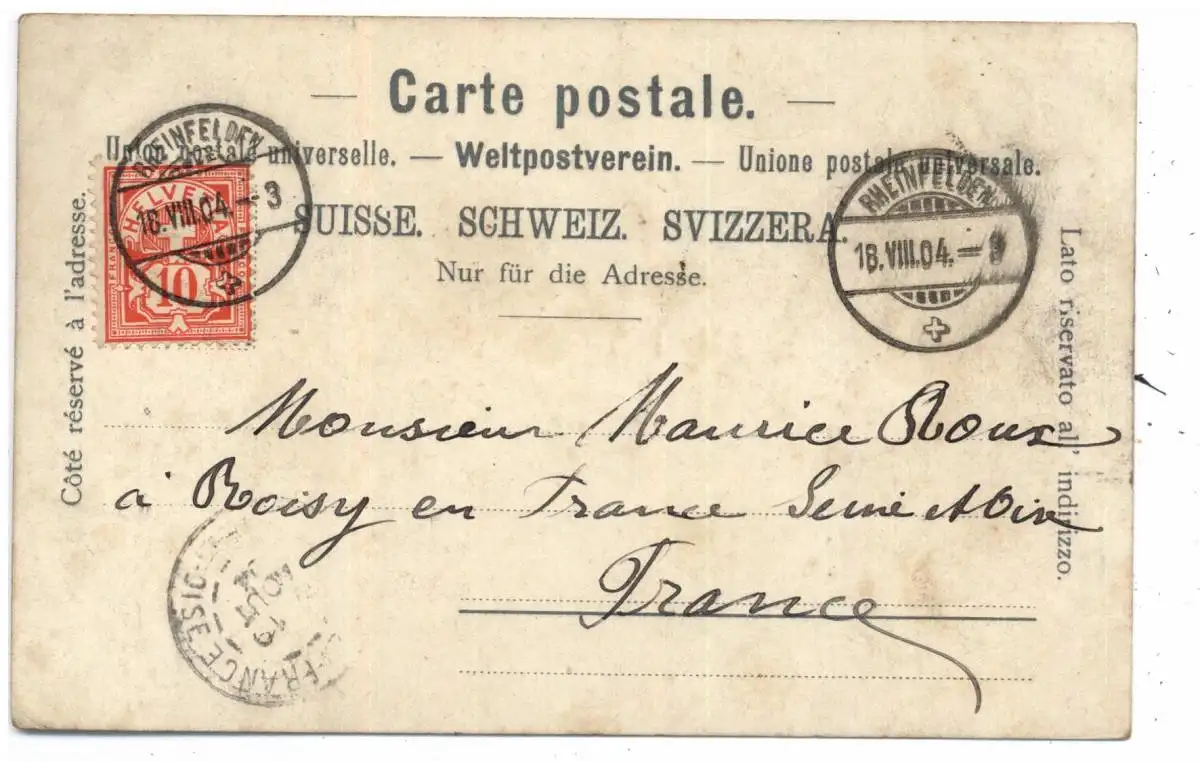 Carte postale.
Union postale universelle. — Weltpostverein. — Unione postale universale.
SUISSE. SCHWEIZ. SVIZZERA.
Nur für die Adresse.
Côté réservé à l'adresse.
Lato riservato all' indirizzo.
HELVETIA
10
RHEINFELDEN
18.VIII.04.–3
RHEINFELDEN.
18.VIII.04.–
Monsieur Maurice Roux
à Roisy en France Seine et Oise
France
FRANCE